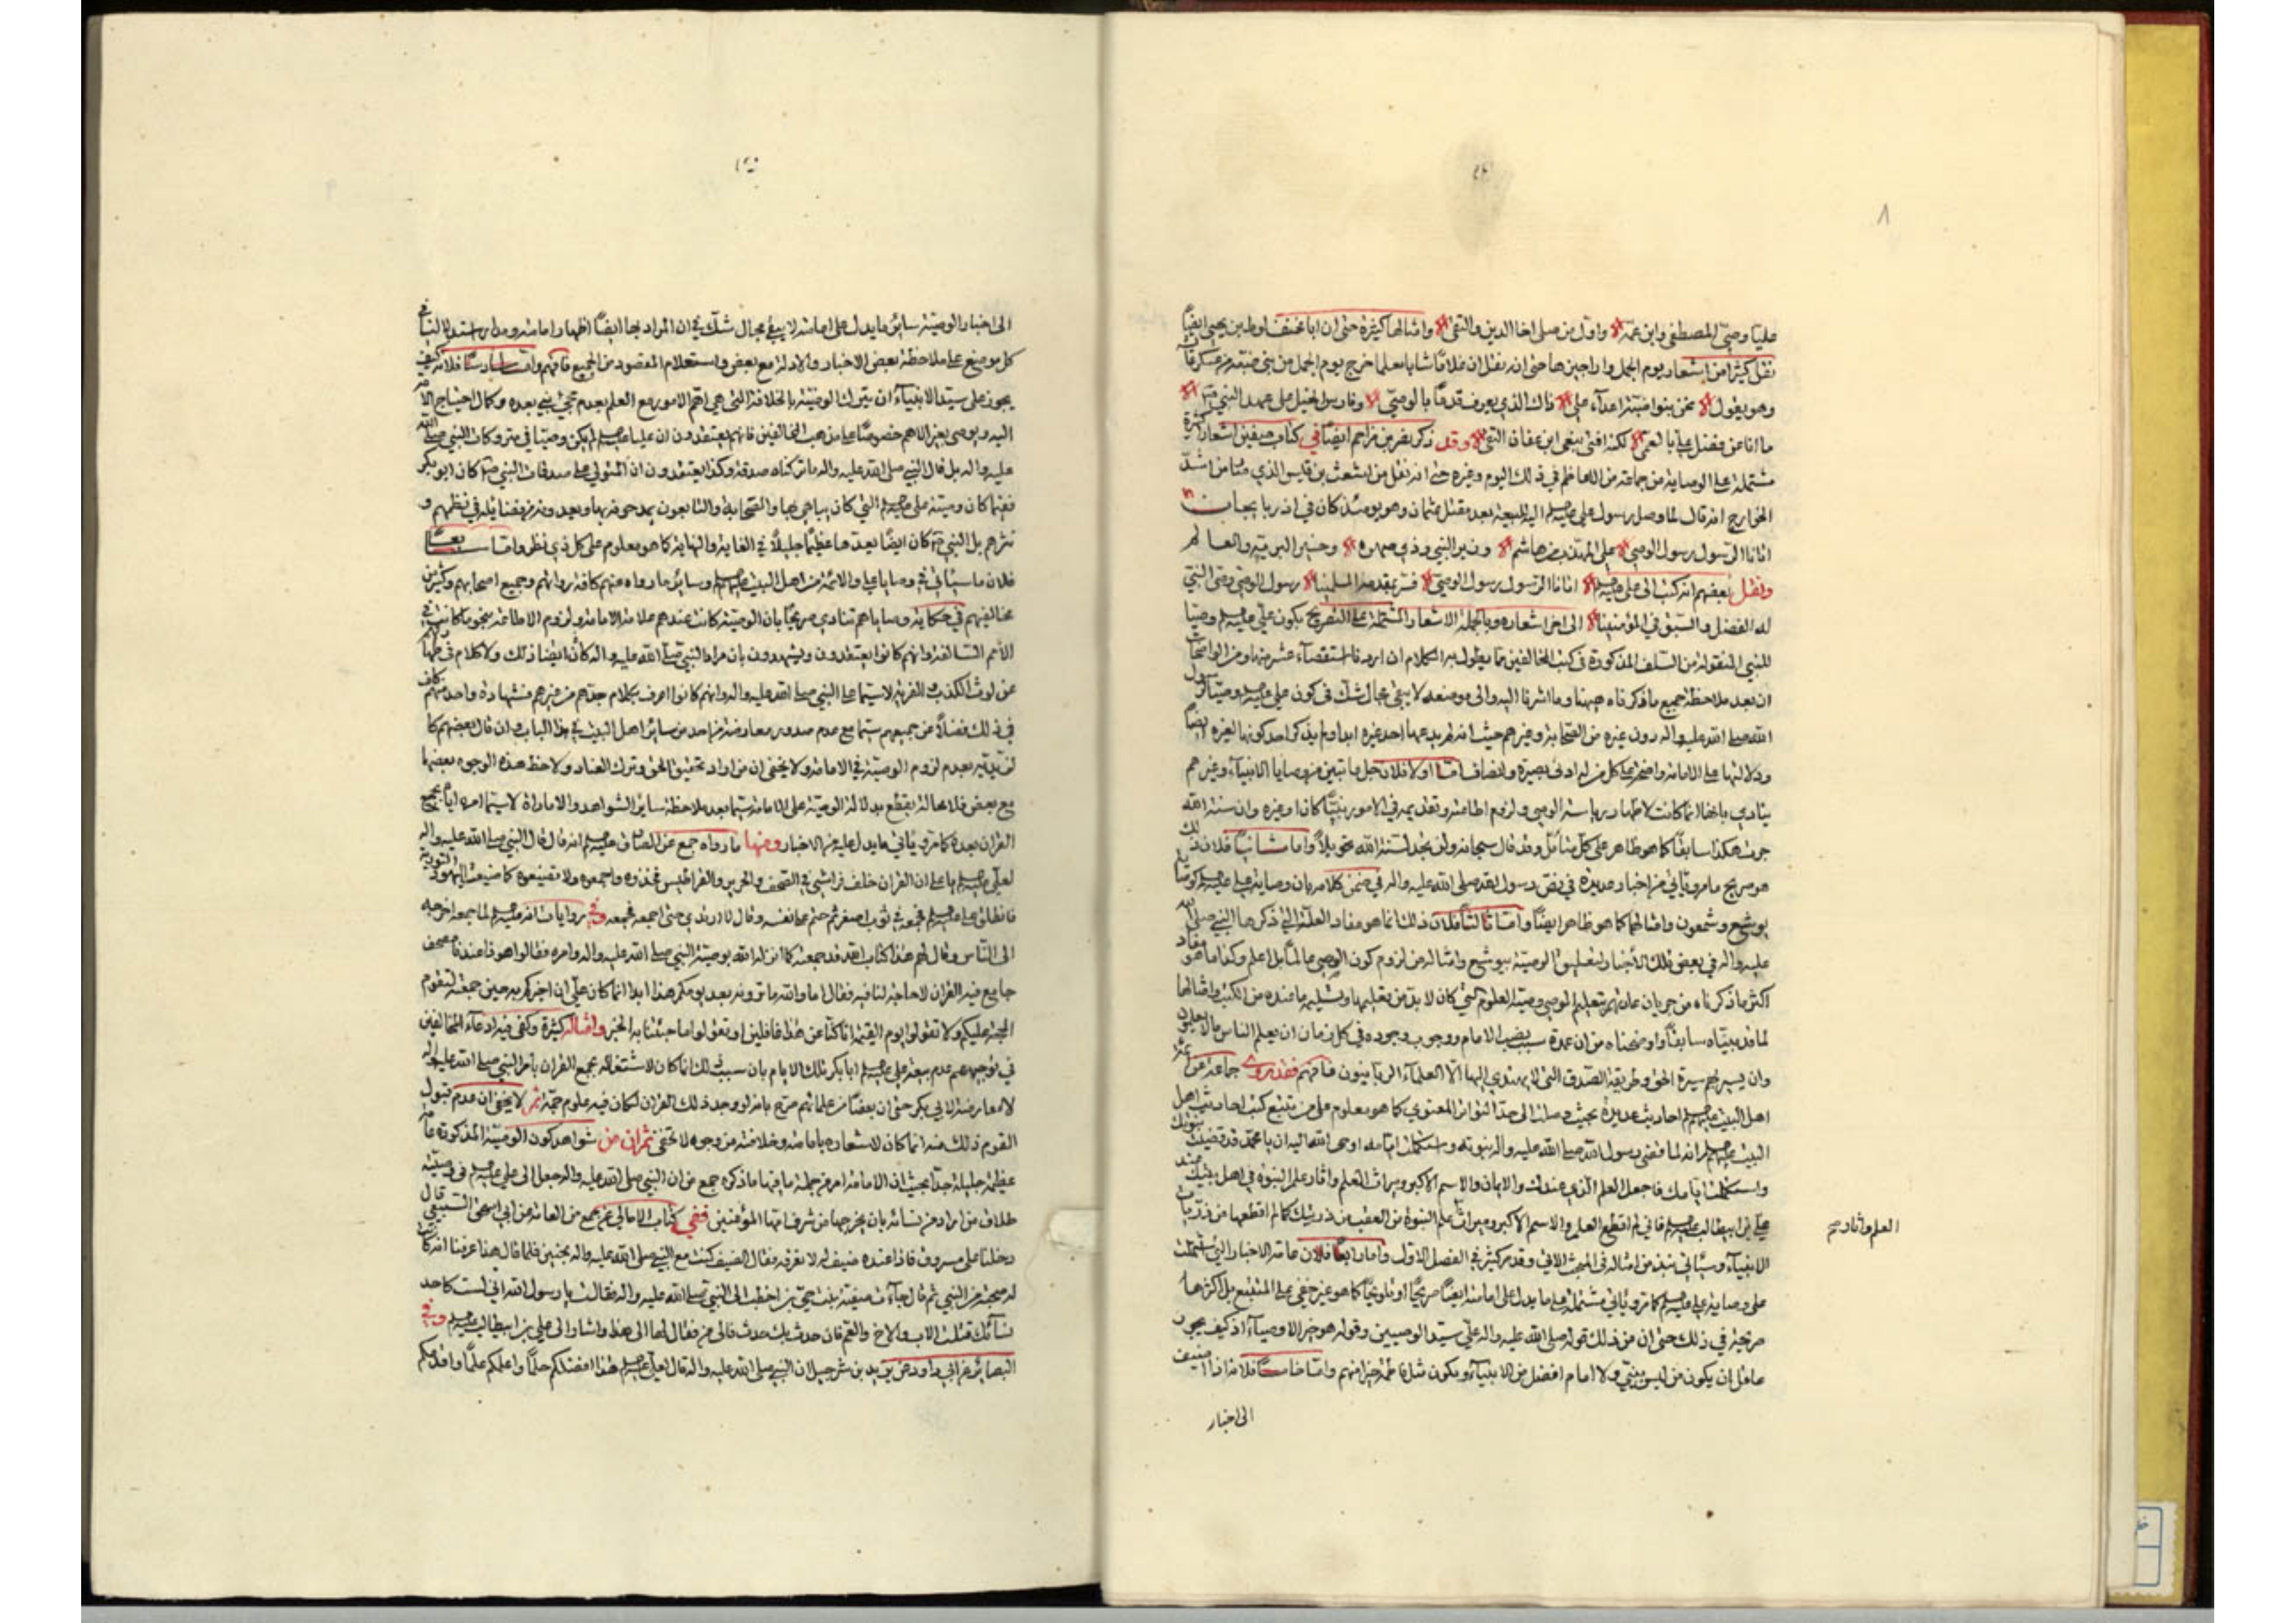 عليا وصيّ المصطفى وابن عمّه واوّل من صلى اخا الدين والتقى وامثالها كثيرة حتى ان ابا مخنف لوط بن يحيى ايضاً
نقل كثيرا من اشعار يوم الجمل واراجيزها حتى انه نقل ان غلاما شابا معلما خرج يوم الجمل من بني ضبة من عسكر عائشة
وهو يقول نحن بنو ضبة اعداء علي ذاك الذي يعرف قدماً بالوصيّ وفارس الخيل على عهد النبي
ما انا عن فضل علي بالعمي لكنني انعى ابن عفان التقي وقد ذكر نصر بن مزاحم ايضا في كتاب صفين اشعار كثيرة
مشتملة على الوصاية من جماعة من الفاظهم في ذلك اليوم وغيره حتى انه نقل من اشعث بن قيس الذي صار من اشدّ
الخوارج انه قال لما وصل رسول علي عليه السلم اليه للبيعة بعد مقتل عثمان وهو يومئذ كان في اذربايجان
اتانا الرسول رسول الوصي علي المهذب من هاشم وزير النبي وذي صهره وخير البرية والعالم
ونقل بعضهم انه كتب الى علي عليه السلم اتانا الرسول رسول الوصيّ فسر بمقدمه المسلمينا رسول الوصي وصي النبي
له الفضل والسبق في المؤمنينا الى اخر اشعاره وبالجملة الاشعار المشتملة على التصريح بكون علي عليه السلم وصيا
للنبي المنقولة من السلف المذكورة في كتب المخالفين مما يطول به الكلام ان اردنا استقصاء عشر منها ومن الواضحات
ان بعد ملاحظة جميع ما ذكرناه هيهنا وما اشرنا اليه والى موضعه لا يبقى مجال شك في كون علي عليه السلم وصيّا لرسول
الله صلى الله عليه واله دون غيره من الصحابة وغيرهم حيث انه لم يدعها احد غيره ابدا ولم يذكر احد كونها لغيره ايضاً
ودلالتها على الامامة واضحة على كل من له ادنى بصيرة وانصاف اما اولا فلان جل ما تبين من وصايا الانبياء وغيرهم
ينادي بانها انما كانت لاظهار رياسة الوصي ولزوم اطاعته وتقديمه في الامور نبيّا كان او غيره وان سنة الله
جرت هكذا سابقا كما هو ظاهر على كل متأمل وقد قال سبحانه ولن تجد لسنة الله تحويلاً واما ثانياً فلان ذلك
هو صريح ما مر وياتي من اخبار عديدة في نص رسول الله صلى الله عليه واله في ضمن كلامه بان وصاية علي عليه السلم كوصايا
يوشع وشمعون وامثالهما كما هو ظاهر ايضاً واما ثالثاً فلان ذلك انما هو مفاد العلة التي ذكرها النبي صلى الله
عليه واله في بعض تلك الاخبار لتعليق الوصية بيوشع وامثاله من لزوم كون الوصي عالما بل اعلم وكذا ما هو مفاد
اكثر ما ذكرناه من جريان عادتهم بتعليم الوصي وصية العلوم التي كان لا بد من تعليمها وتسليمه ما عنده من الكتب وامثالها
لما قد بيّناه سابقاً واوضحناه من ان عمدة سبب نصب الامام ووجوب وجوده في كل زمان ان يعلم الناس ما لا يعلمون
وان يسير بهم سيرة الحق وطريقة الصدق التي لا يهتدي اليها الا العلماء الربانيون فافهم فقد روى جماعة عن ائمة
اهل البيت عليهم السلم احاديث عديدة بحيث وصلت الى حد التواتر المعنوي كما هو معلوم على من تتبع كتب احاديث اهل
البيت عليهم السلم انه لما قضى رسول الله صلى الله عليه واله نبوته واستكملت ايامه اوحى الله اليه ان يا محمد قد قضيت نبوتك
واستكملت ايامك فاجعل العلم الذي عندك والايمان والاسم الاكبر وميراث العلم واثار علم النبوة في اهل بيتك عند
علي بن ابيطالب عليه السلم فاني لم اقطع العلم والاسم الاكبر وميراث علم النبوة من العقب من ذريتك كما لم اقطعها من ذريات
العلم واثار صح
الانبياء وسيأتي نبذ من امثاله في المبحث الاتي وقد مر كثير في الفصل الاول واما رابعاً فلان عامة الاخبار التي اشتملت
على وصاية علي عليه السلم كما مر ويأتي مشتملة على ما يدل على امامته ايضا صريحا او تلويحا كما هو غير خفي على المتتبع بل اكثرها
صريحة في ذلك حتى ان من ذلك قوله صلى الله عليه واله علي سيد الوصيين وقوله هو خير الاوصياء اذ كيف يجوز
عاقل ان يكون من ليس بنبي ولا امام افضل من الانبياء ويكون مثل فاطمة خيرا منهم واما خامساً فلانه اذا اضيف
الى اخبار
الى اخبار الوصيّة سائر ما يدل على امامته لا يبقى مجال شك في ان المراد بها ايضاً اظهار امامته ومدار استدلالنا في
كل موضع على ملاحظة بعض الاخبار والادلة مع بعض واستعلام المقصود من الجميع فافهم واما سادساً فلانه كيف
يجوز على سيد الانبياء ان يترك الوصيّة بالخلافة التي هي اهم الامور مع العلم بعدم مجيء نبي بعده وكمال احتياج الامة
اليه ويوصي بغير الاهم خصوصاً على مذهب المخالفين فانهم يعتقدون ان عليا عليه السلم لم يكن وصيا في متروكات النبي صلى الله
عليه واله بل قال النبي صلى الله عليه واله ما تركناه صدقة وكذا يعتقدون ان المتولي على صدقات النبي كان ابو بكر
ففيما كان وصيته علي عليه السلم التي كان يباهي بها والصحابة والتابعون يمدحونه بها ويعدونه من فضائله في نظمهم و
نثرهم بل النبي كان ايضاً يعدها عظيماً جليلاً في الغاية والنهاية كما هو معلوم على كل ذي نظر واما سابعاً
فلان ما سيأتي في وصايا علي والائمة من اهل البيت عليهم السلم وسائر ما رواه عنهم كافة رواتهم وجميع اصحابهم وكثير من
مخالفيهم في حكاية وصاياهم تنادي صريحا بان الوصية كانت عندهم علامة الامامة ولزوم الاطاعة بنحو ما كانت في
الأمم السالفة وانهم كانوا يعتقدون ويشهدون بان مراد النبي صلى الله عليه واله كان ايضا ذلك ولا كلام في طهارتهم
عن لوث الكذب والفرية لاسيما على النبي صلى الله عليه واله وانهم كانوا اعرف بكلام جدهم من غيرهم فشهادة واحد منهم كاف
في ذلك فضلاً عن جميعهم سيما مع عدم صدور معارضة من احد من سائر اهل البيت في هذا الباب وان قال بعضهم كا
لزيدية بعدم لزوم الوصيّة في الامامة ولا يخفى ان من اراد تحقيق الحق وترك العناد ولاحظ هذه الوجوه بعضها
مع بعض فلا محالة يقطع بدلالة الوصية على الامامة سيما بعد ملاحظة سائر الشواهد والامارات لاسيما امره اياه بجمع
القران بعده كما مر ويأتي ما يدل عليه من الاخبار ومنها ما رواه جمع عن الصادق عليه السلم انه قال قال النبي صلى الله عليه واله
لعلي عليه السلم يا علي ان القران خلف فراشي في الصحف والحرير والقراطيس فخذوه واجمعوه ولا تضيعوه كما ضيعت اليهود التورية
فانطلق علي عليه السلم فجمعه في ثوب اصفر ثم ختم عليه في بيته وقال لا ارتدي حتى اجمعه فجمعه وفي روايات انه عليه السلم لما جمعه اخرجه
الى الناس وقال لهم هذا كتاب الله قد جمعته كما انزله الله بوصية النبي صلى الله عليه واله وامره فقالوا هو ذا عندنا مصحف
جامع فيه القران لا حاجة لنا فيه فقال اما والله ما ترونه بعد يومكم هذا ابدا انما كان علي ان اخبركم به حين جمعته لتقوم
الحجة عليكم ولا تقولوا يوم القيمة انا كنا عن هذا غافلين او تقولوا ما جئتنا به الخبر وامثاله كثيرة وكفى فيه ادعاء المخالفين
في توجيههم عدم بيعة علي عليه السلم ابا بكر تلك الايام بان سبب ذلك انما كان لاشتغاله بجمع القران بأمر النبي صلى الله عليه واله
لا لمعارضة لابي بكر حتى ان بعضا من علمائهم صرح بانه لو وجد ذلك القران لكان فيه علوم جمّة ثم لا يخفى ان عدم قبول
القوم ذلك منه انما كان لاشعاره بامامته وخلافته من وجوه لا تخفى ثم ان من شواهد كون الوصيّة المذكورة عامة
عظيمة جليلة جداً بحيث ان الامامة امر من جملة ما فيها ما ذكره جمع من ان النبي صلى الله عليه واله جعل الى علي عليه السلم في وصيّته
طلاق من اراد من نسائه بان يخرجها من شرف امهات المؤمنين ففي كتاب الامالي عن جمع من العامة عن ابي اسحق السبيعي قال
دخلنا على مسروق فاذا عنده ضيف له لا نعرفه فقال الضيف كنت مع النبي صلى الله عليه واله بحنين فلما قال هذا عرفنا انه كانت
له صحبة من النبي ثم قال جاءت صفية بنت حيي بن اخطب الى النبي صلى الله عليه واله فقالت يا رسول الله اني لست كاحد
نسائك قتلت الاب والاخ والعم فان حدث بك حدث فالى من فقال لها الى هذا واشار الى علي بن ابيطالب عليه السلم وفي
البصائر عن ابي داود عن يزيد بن شرحبيل ان النبي صلى الله عليه واله قال لعلي عليه السلم هذا افضلكم حلماً واعلمكم علماً واقدمكم